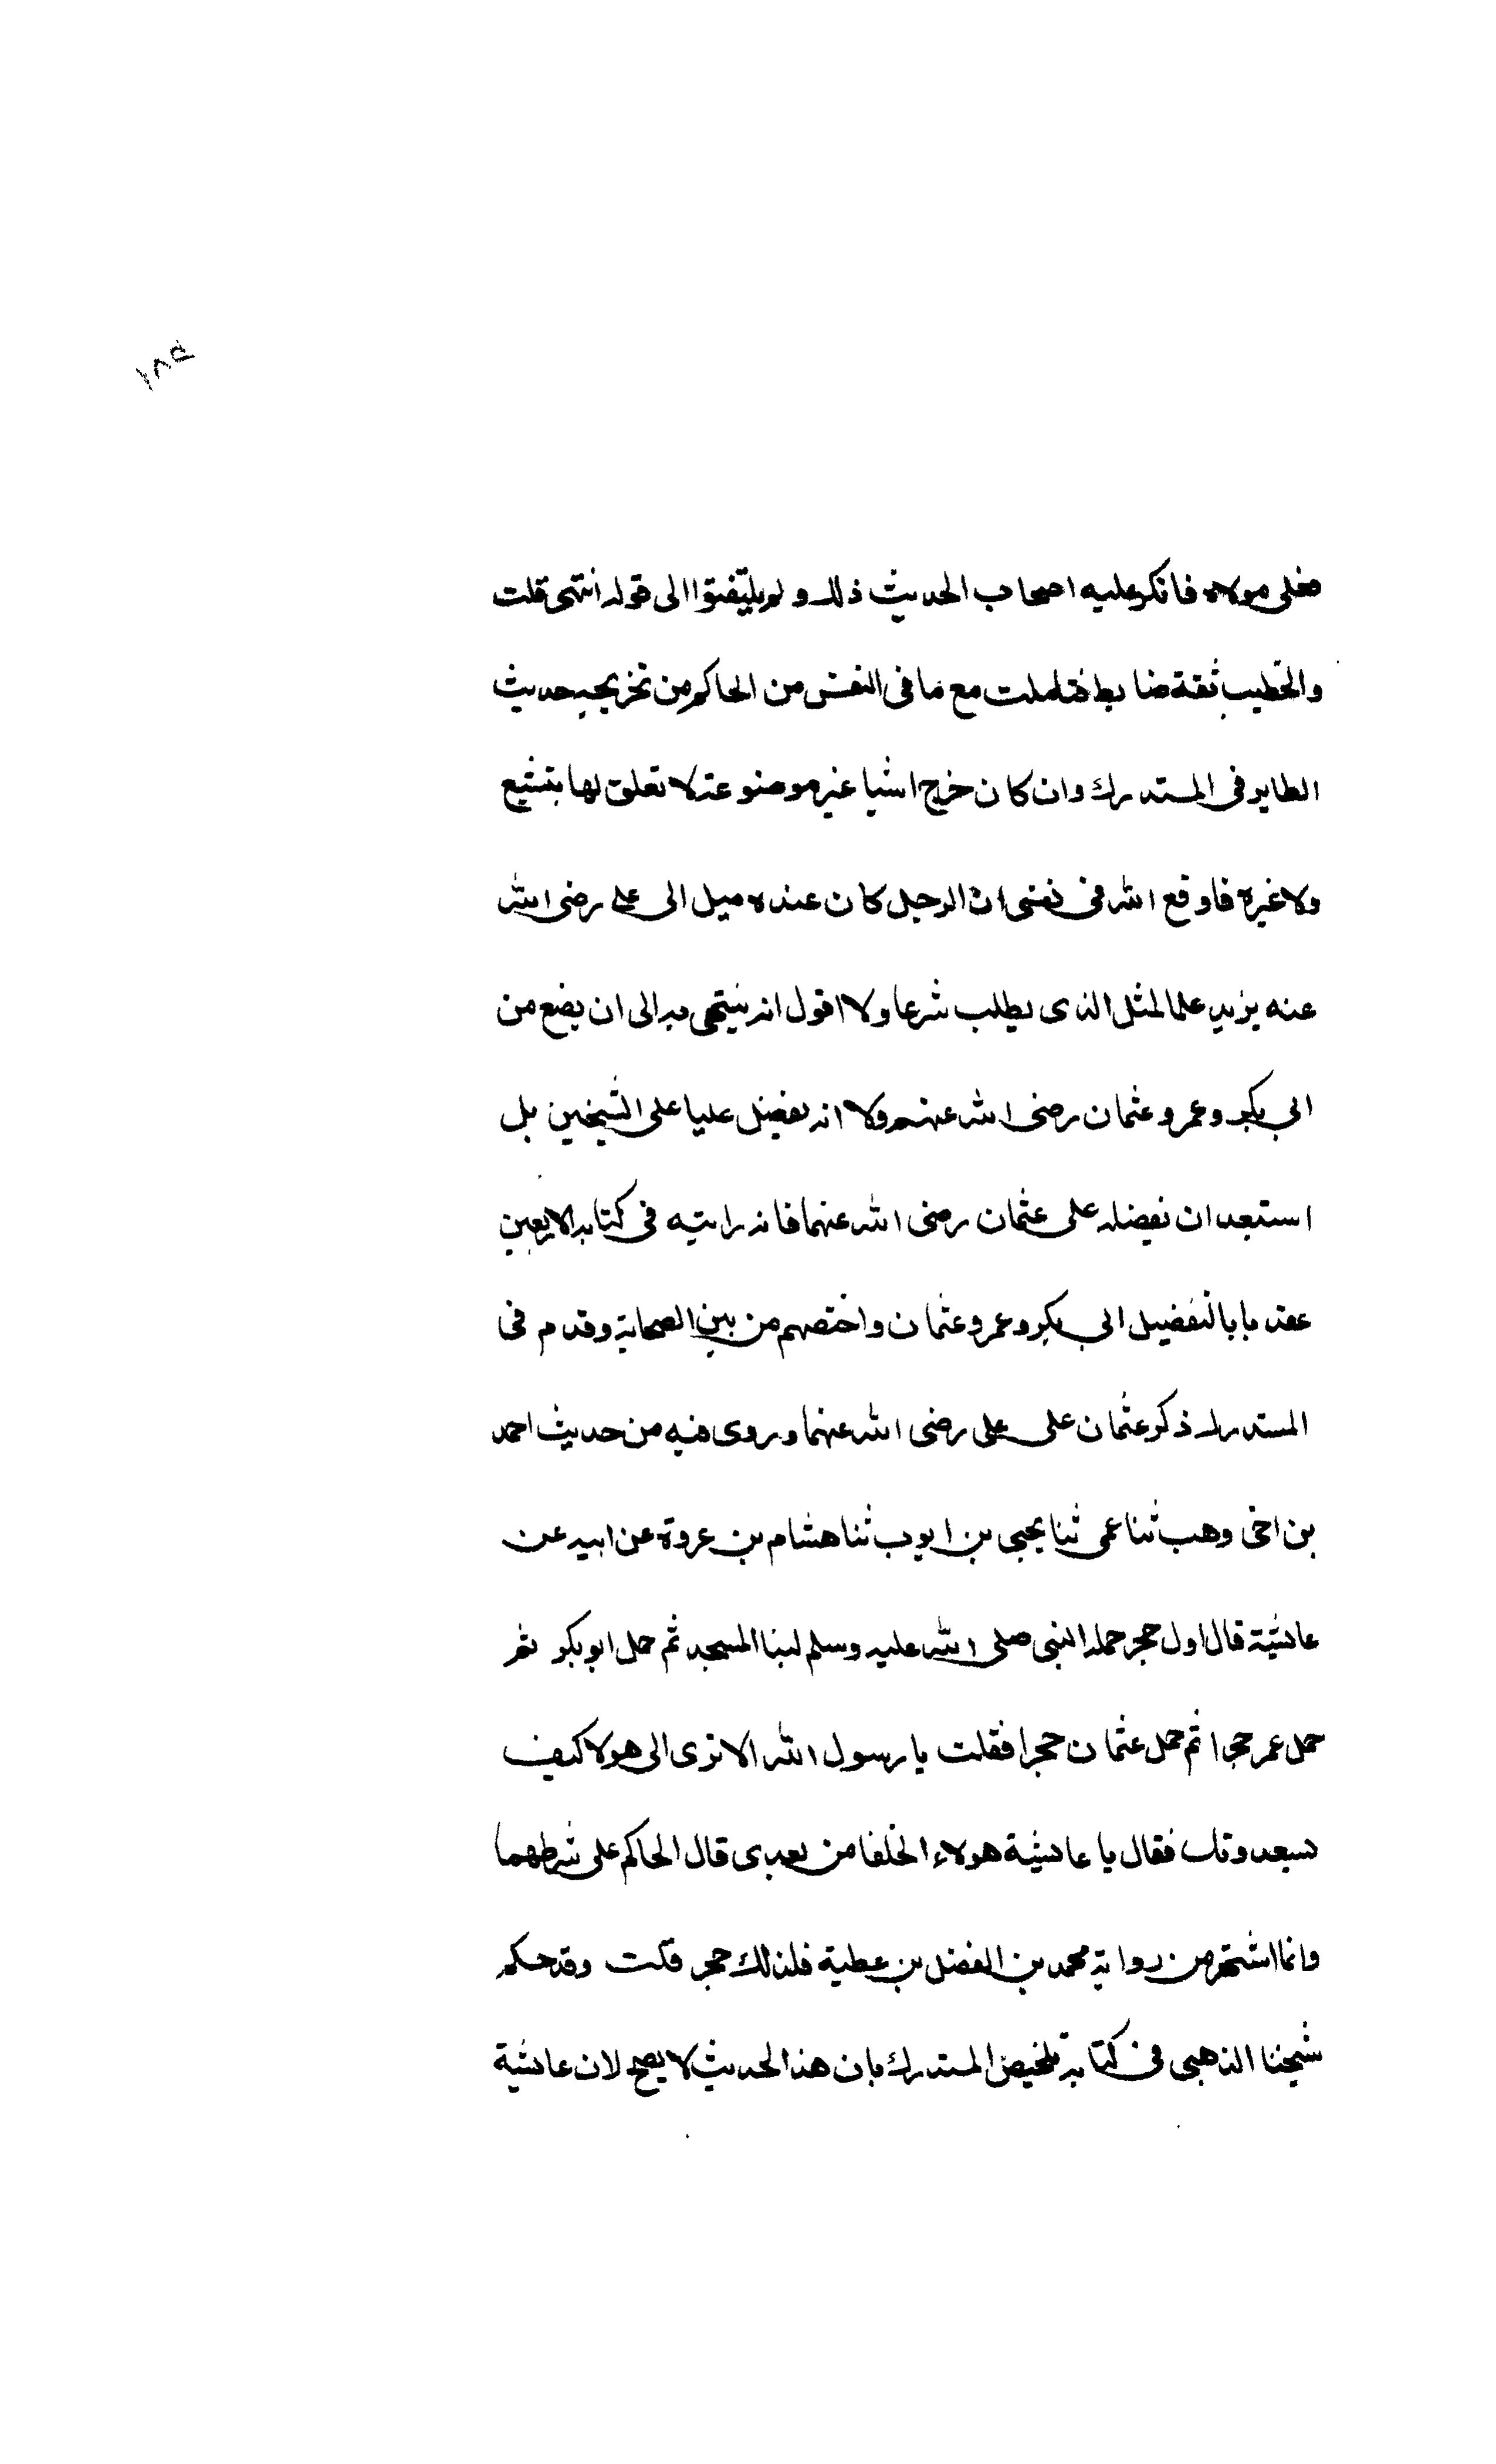 فعلى مولاه فانكر عليه اصحاب الحديث ذلك ولم يلتفتوا الى قوله انتهى قلت
والخطيب ثقة ضابط فتاملت مع ما فى النفس من الحاكم من تخريجه حديث
الطاير فى المستدرك وان كان خرج اشيا غير موضوعة لا تعلق لها بتشيع
ولا غيره فاوقع الله فى نفسى ان الرجل كان عنده ميل الى على رضى الله
عنه يزيد على المثل الذى يطلب شرعا ولا اقول انه ينتهى به الى ان يضع من
ابى بكر وعمر وعثمان رضى الله عنهم ولا انه يفضل عليا على الشيخين بل
استبعد ان يفضله على عثمان رضى الله عنهما فانه رايته فى كتابه الاربعين
عقد بابا لتفضيل ابى بكر وعمر وعثمان واختصهم من بين الصحابة وقدم فى
المستدرك ذكر عثمان على على رضى الله عنهما وروى فيه من حديث احمد
بن اخى وهب ثنا عمى ثنا يحيى بن ايوب ثنا هشام بن عروة عن ابيه عن
عايشة قال اول حجر حمله النبى صلى الله عليه وسلم لبنا المسجد ثم حمل ابو بكر ثم
حمل عمر حجرا ثم حمل عثمان حجرا فقلت يا رسول الله الا ترى الى هولا كيف
يسعدونك فقال يا عايشة هولاء الخلفا من بعدى قال الحاكم على شرطهما
وانما اشتهر من رواية محمد بن الفضل بن عطية فلذلك حجر قلت وقد حكم
شيخنا الذهبى فى كتابه تلخيص المستدرك بان هذا الحديث لا يصح لان عايشة